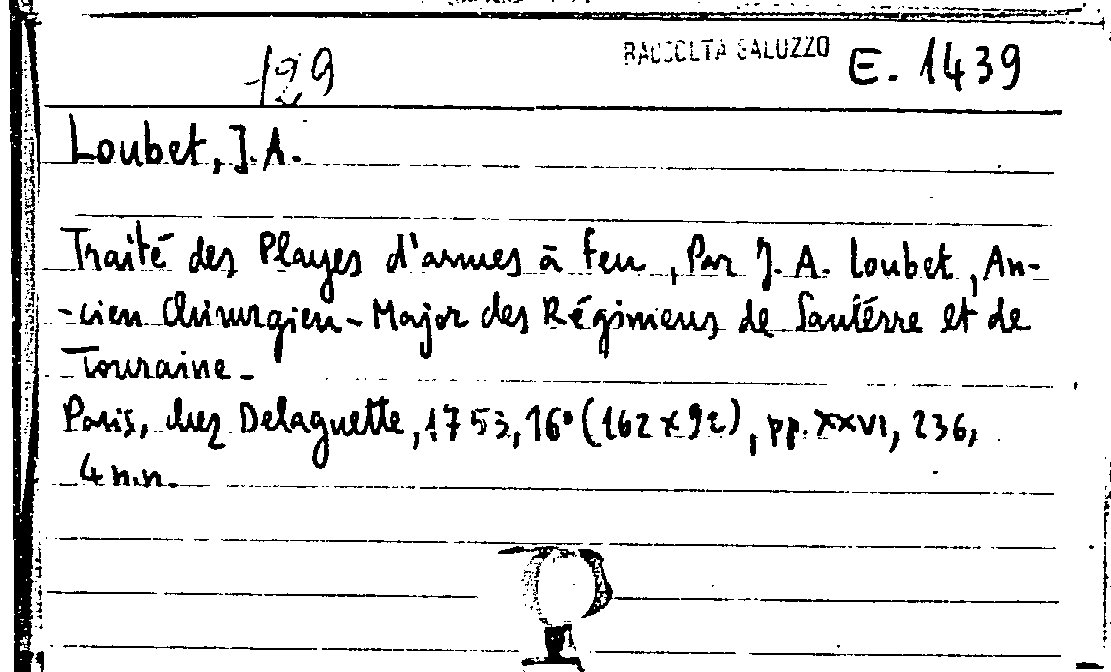 129 RACCOLTA SALUZZO E. 1439
Loubet, J.A.
Traité des Playes d'armes à feu, Par J. A. Loubet, An-
-cien Chirurgien-Major des Régimens de Santérre et de
Touraine.
Paris, chez Delaguette, 1753, 16° (162 x 92), pp. XXVI, 236,
4 n.n.